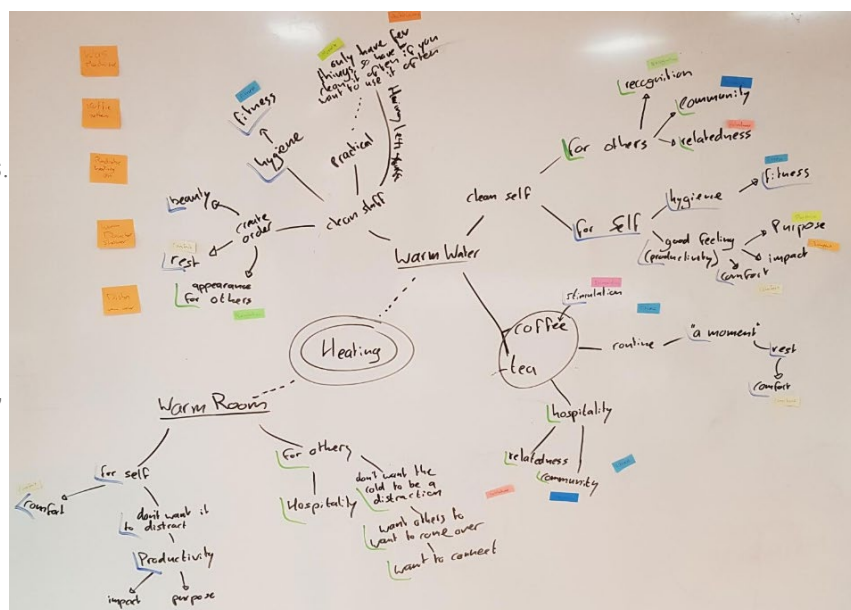 only have few
things so have to
clean it often if you
want to use it often
fitness
hygiene
practical
clean stuff
beauty
create
order
rest
appearance
for others
Warm Water
clean self
for others
recognition
community
relatedness
for self
hygiene
fitness
good feeling
(productivity)
Purpose
impact
comfort
stimulation
coffee
tea
routine
"a moment"
rest
comfort
hospitality
relatedness
community
Heating
Warm Room
for self
comfort
don't want it
to distract
Productivity
impact
purpose
for others
Hospitality
don't want the
cold to be a
distraction
want others to
want to come over
want to connect